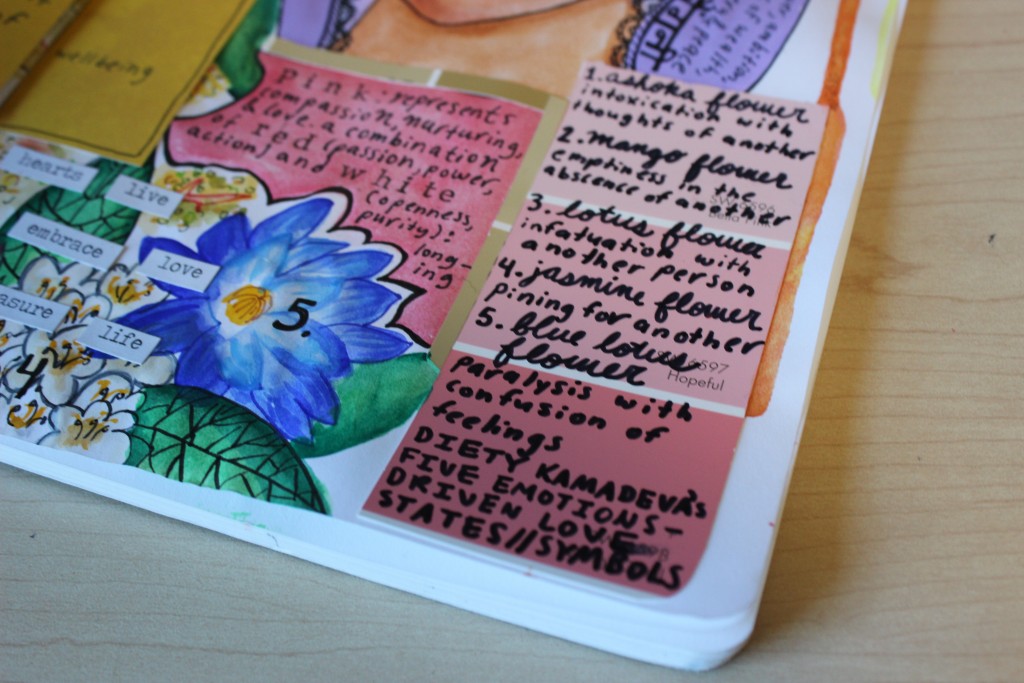 wellbeing
hearts
live
embrace
love
life
4
5.
pink: represents
compassion, nurturing,
& love a combination
of red (passion, power,
action) and white
(openness,
purity):
long-
ing
1. ashoka flower
intoxication with
thoughts of another
2. mango flower
emptiness in the
absence of another
3. lotus flower
infatuation with
another person
4. jasmine flower
pining for another
5. blue lotus
flower
6597
Hopeful
paralysis with
confusion of
feelings
DIETY KAMADEVA's
FIVE EMOTIONS-
DRIVEN LOVE
STATES//SYMBOLS